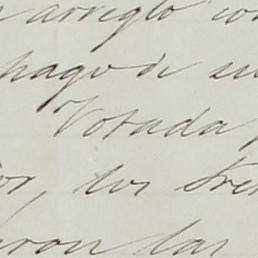 arreglo con
pago de su
Votada
los tres
eron las